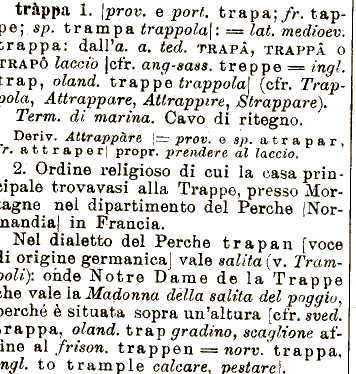 tràppa 1. [prov. e port. trapa; fr. tap-
pe; sp. trampa trappola]: = lat. medioev.
trappa: dall'a. a. ted. TRAPÂ, TRAPPÂ o
TRAPÔ laccio [cfr. ang-sass. treppe = ingl.
trap, oland. trappe trappola] (cfr. Trap-
pola, Attrappare, Attrappire, Strappare).
Term. di marina. Cavo di ritegno.
Deriv. Attrappàre [= prov. e sp. atrapar,
fr. attraper] propr. prendere al laccio.
2. Ordine religioso di cui la casa prin-
cipale trovavasi alla Trappe, presso Mor-
tagne nel dipartimento del Perche [Nor-
mandia] in Francia.
Nel dialetto del Perche trapan [voce
di origine germanica] vale salita (v. Tram-
poli): onde Notre Dame de la Trappe
che vale la Madonna della salita del poggio,
perché è situata sopra un'altura [cfr. sved.
trappa, oland. trap gradino, scaglione af-
fine al frison. trappen = norv. trappa,
ingl. to trample calcare, pestare].